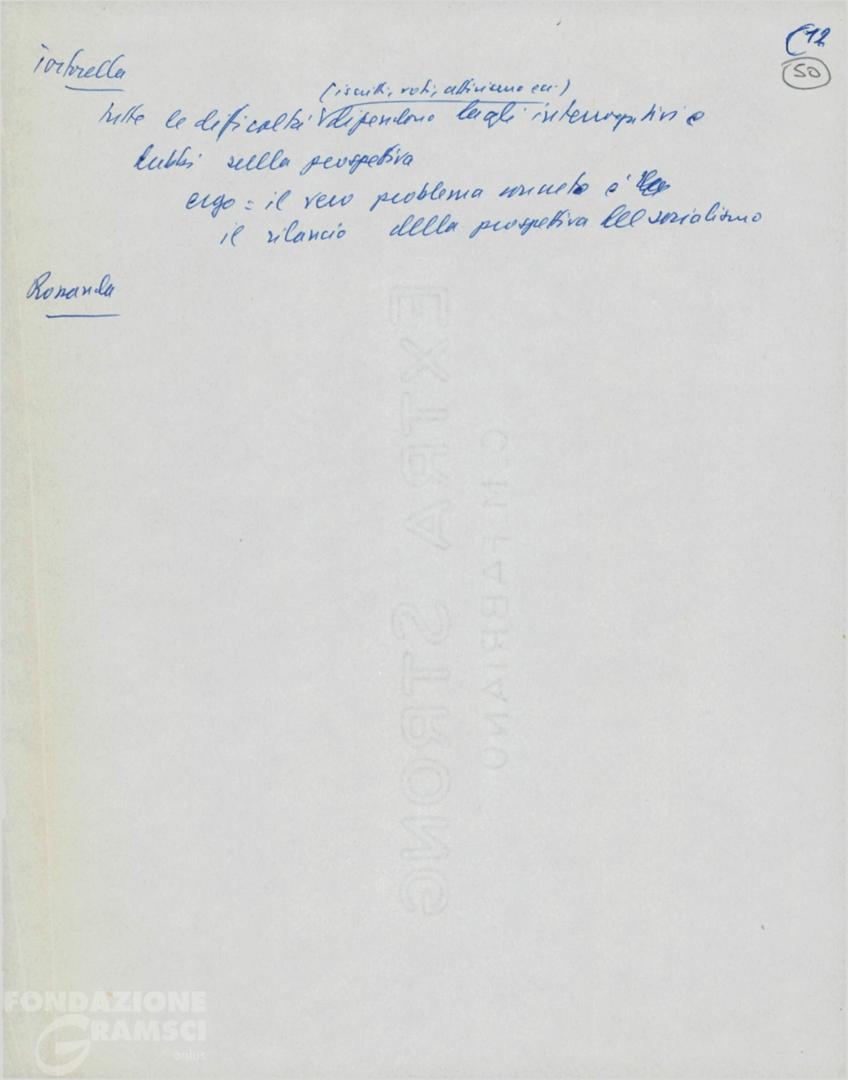 12
50
Tortorella
(iscritti, voti, attivismo ecc.)
tutte le difficoltà dipendono dagli interrogativi e
dubbi sulla prospettiva
ergo = il vero problema concreto è
il rilancio della prospettiva del socialismo
Rossanda
EXTRA STRONG
C.M. FABRIANO
FONDAZIONE
GRAMSCI
onlus